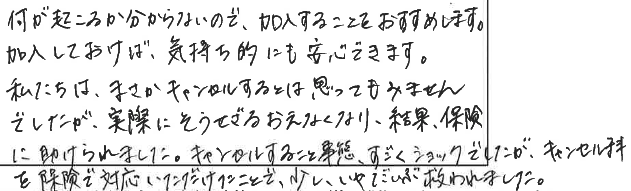 何が起こるか分からないので、加入することをおすすめします。
加入しておけば、気持ち的にも安心できます。
私たちは、まさかキャンセルするとは思ってもみません
でしたが、実際にそうせざるおえなくなり、結果、保険
に助けられました。キャンセルすること事態、すごくショックでしたが、キャンセル料
を保険で対応いただけたことで、少し、いやだいぶ救われました。